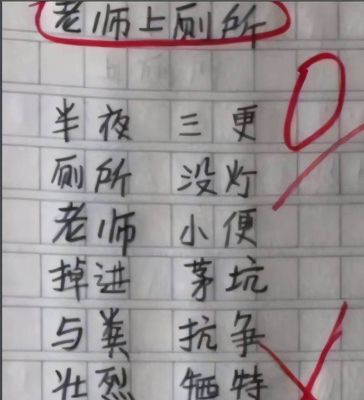 老师上厕所
半夜 三更
厕所 没灯
老师 小便
掉进 茅坑
与粪 抗争
壮烈 牺特